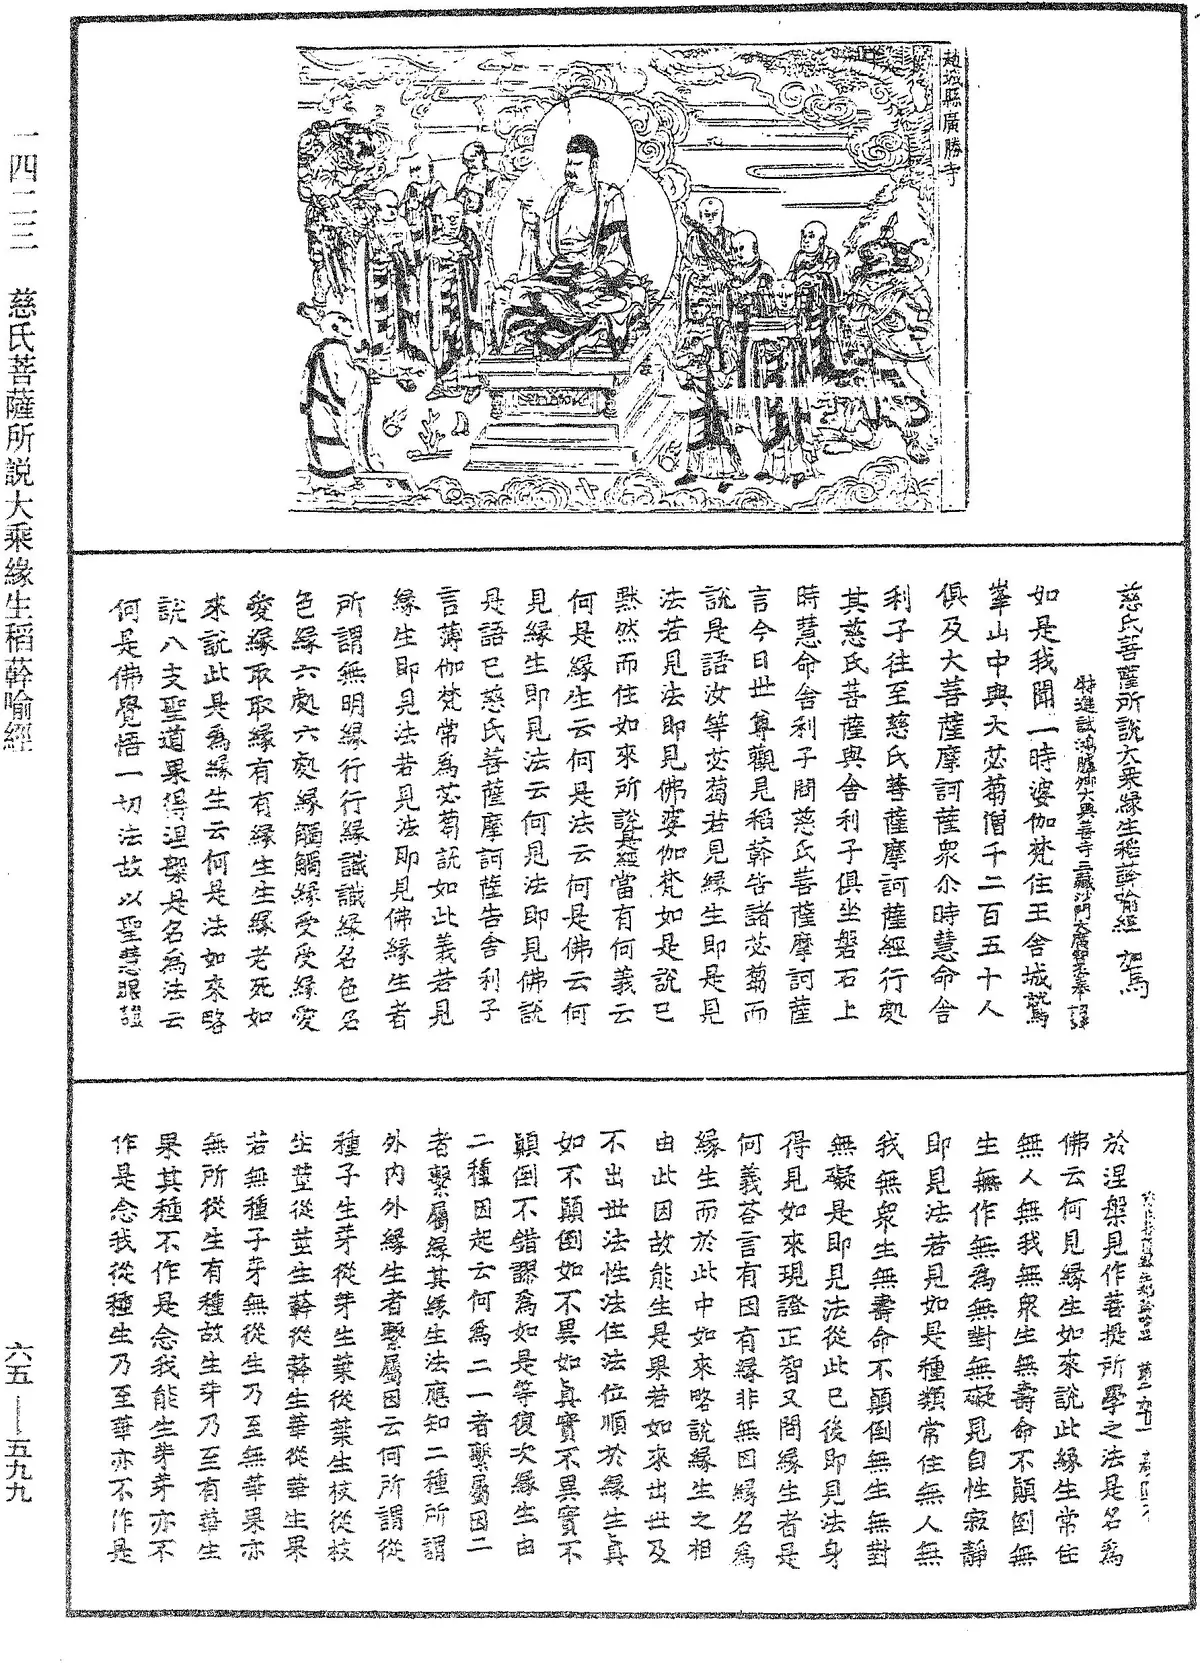 一四二三　慈氏菩薩所説大乘緣生稻䕀喻經
趙城縣廣勝寺
慈氏菩薩所説大乘緣生稻䕀喻經
特進試鴻臚卿大興善寺三藏沙門大廣智不空奉　詔譯
如是我聞一時婆伽梵住王舍城鷲
峯山中與大苾蒭僧千二百五十人
俱及大菩薩摩訶薩衆尒時慧命舍
利子往至慈氏菩薩摩訶薩經行處
其慈氏菩薩與舍利子俱坐磐石上
時慧命舍利子問慈氏菩薩摩訶薩
言今日世尊觀見稻䕀告諸苾蒭而
説是語汝等苾蒭若見緣生即是見
法若見法即見佛婆伽梵如是説已
黙然而住如來所説是經當有何義云
何是緣生云何是法云何是佛云何
見緣生即見法云何見法即見佛説
是語已慈氏菩薩摩訶薩告舍利子
言薄伽梵常爲苾蒭説如此義若見
緣生即見法若見法即見佛緣生者
所謂無明緣行行緣識識緣名色名
色緣六處六處緣觸觸緣受受緣愛
愛緣取取緣有有緣生生緣老死如
來説此是爲緣生云何是法如來略
説八支聖道果得涅槃是名爲法云
何是佛覺悟一切法故以聖慧眼證
於涅槃見作菩提所學之法是名爲
佛云何見緣生如來説此緣生常住
無人無我無衆生無壽命不顛倒無
生無作無爲無對無礙見自性寂靜
即見法若見如是種類常住無人無
我無衆生無壽命不顛倒無生無對
無礙是即見法從此已後即見法身
得見如來現證正智又問緣生者是
何義荅言有因有緣非無因緣名爲
緣生而於此中如來略説緣生之相
由此因故能生是果若如來出世及
不出世法性法住法位順於緣生真
如不顛倒如不異如真實不異實不
顛倒不錯謬爲如是等復次緣生由
二種因起云何爲二一者繫屬因二
者繫屬緣其緣生法應知二種所謂
外內外緣生者繫屬因云何所謂從
種子生芽從芽生葉從葉生枝從枝
生莖從莖生䕀從䕀生華從華生果
若無種子芽無從生乃至無華果亦
無所從生有種故生芽乃至有華生
果其種不作是念我能生芽芽亦不
作是念我從種生乃至華亦不作是
六五—五九九